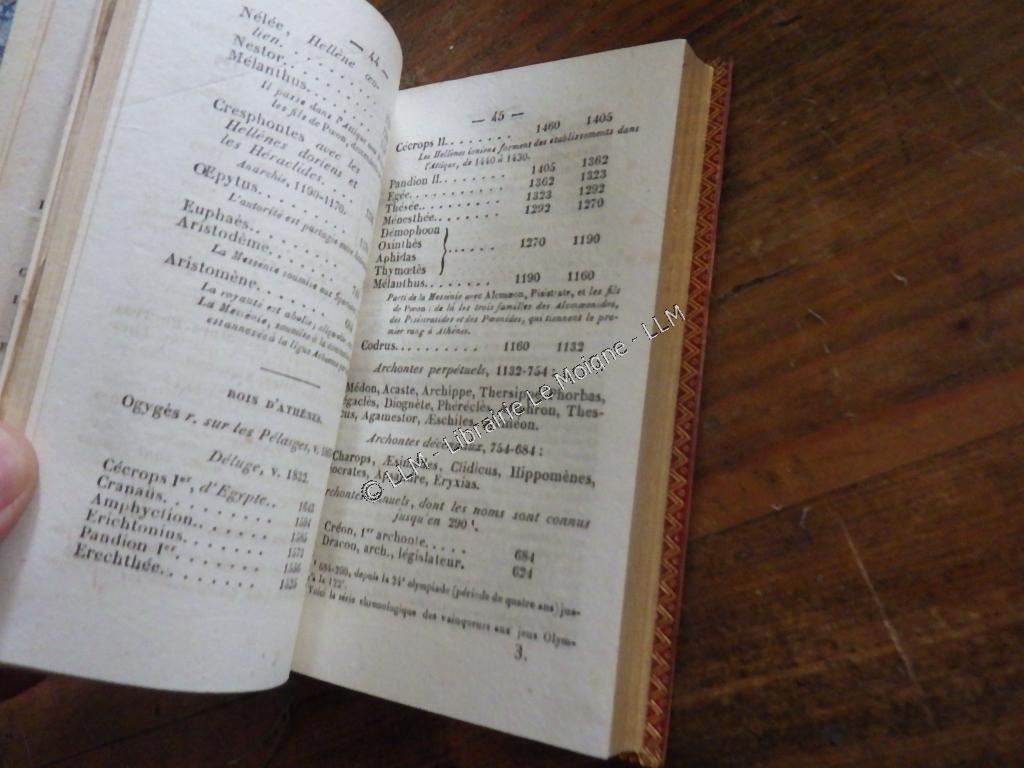 — 44 —
Nélée, Hellène
lien.
Nestor.
Mélanthus.
Il passe dans l'Attique
les fils de Pæon,
Cresphontes avec les
Hellènes doriens et
les Héraclides.
Anarchie, 1190-1170.
Œpytus.
L'autorité est partagée
Euphaès.
Aristodème.
La Messénie soumise aux
Aristomène.
La royauté est abolie;
La Messénie, soumise à la
à la ligue
ROIS D'ATHÈNES.
Ogygès r. sur les Pélasges, v.
Déluge, v. 1832.
Cécrops Ier, d'Egypte. 1643
Cranaüs. 1594
Amphyction. 1585
Erichtonius. 1573
Pandion Ier. 1556
Erechthée. 1525
— 45 —
Cécrops II. 1460 1405
Les Hellènes ioniens forment des établissements dans
l'Attique, de 1440 à 1430.
Pandion II. 1405 1362
Egée. 1362 1323
Thésée. 1323 1292
Ménesthée. 1292 1270
Démophoon
Oxinthès
Aphidas
Thymœtès
1270 1190
Mélanthus. 1190 1160
Parti de la Messénie avec Alcmæon, Pisistrate, et les fils
de Pæon: de là les trois familles des Alcmæonides,
des Pisistratides et des Pæonides, qui tiennent le pre-
mier rang à Athènes.
Codrus. 1160 1132
Archontes perpétuels, 1132-754:
Médon, Acaste, Archippe, Thersippe, Phorbas,
Mégaclès, Diognète, Phéréclès, Thes-
Agamestor, Æschiles,
Archontes décennaux, 754-684:
Charops, Clidicus, Hippomènes,
Eryxias.
Archontes annuels, dont les noms sont connus
jusqu'en 290¹.
Créon, 1er archonte. 684
Dracon, arch., législateur. 624
¹ 684-290, depuis la 24e olympiade (période de quatre ans) jus-
Voici la série chronologique des vainqueurs aux jeux Olym-
3.
© LLM - Librairie Le Moigne - LLM